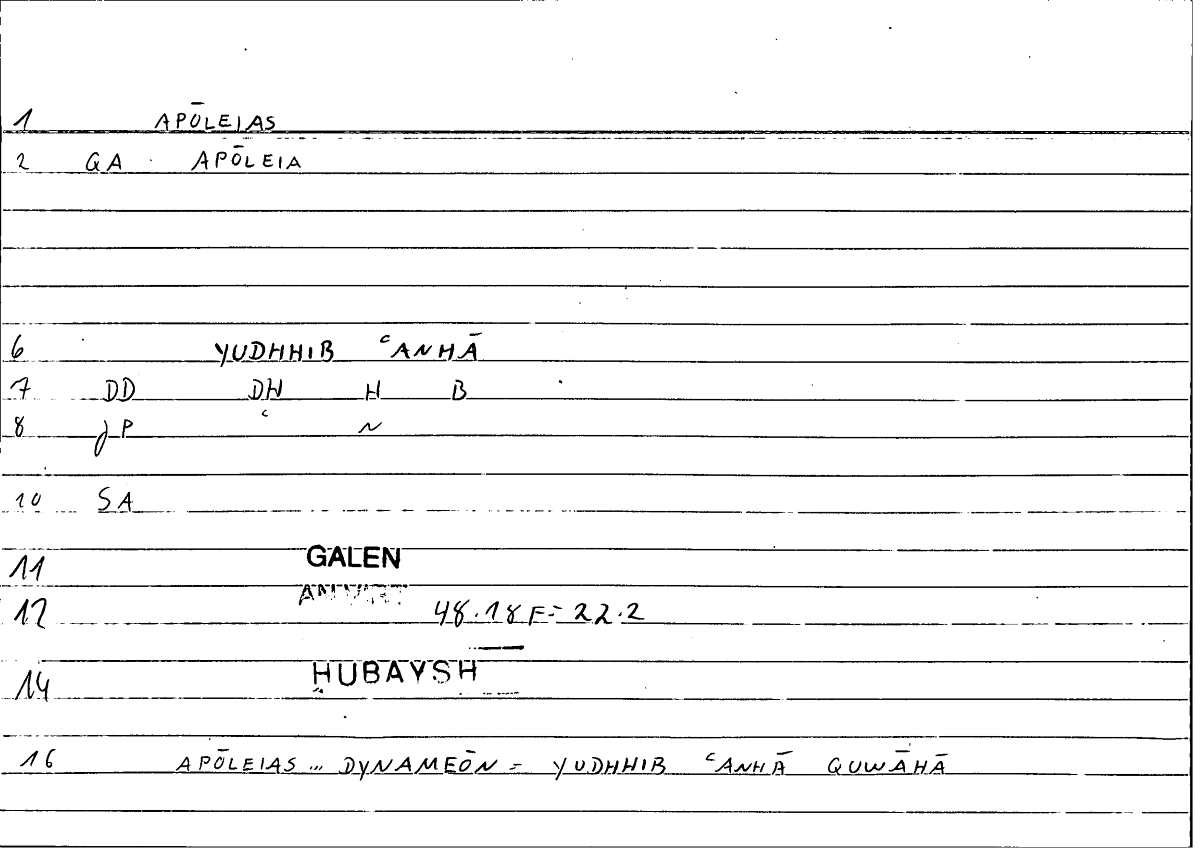 1 APŌLEIAS
2 GA APŌLEIA
6 YUDHHIB ᶜANHĀ
7 DD DH H B
8 JP ᶜ N
10 SA
11 GALEN
12 48.18F= 22.2
14 HUBAYSH
16 APŌLEIAS ... DYNAMEŌN = YUDHHIB ᶜANHĀ QUWĀHĀ